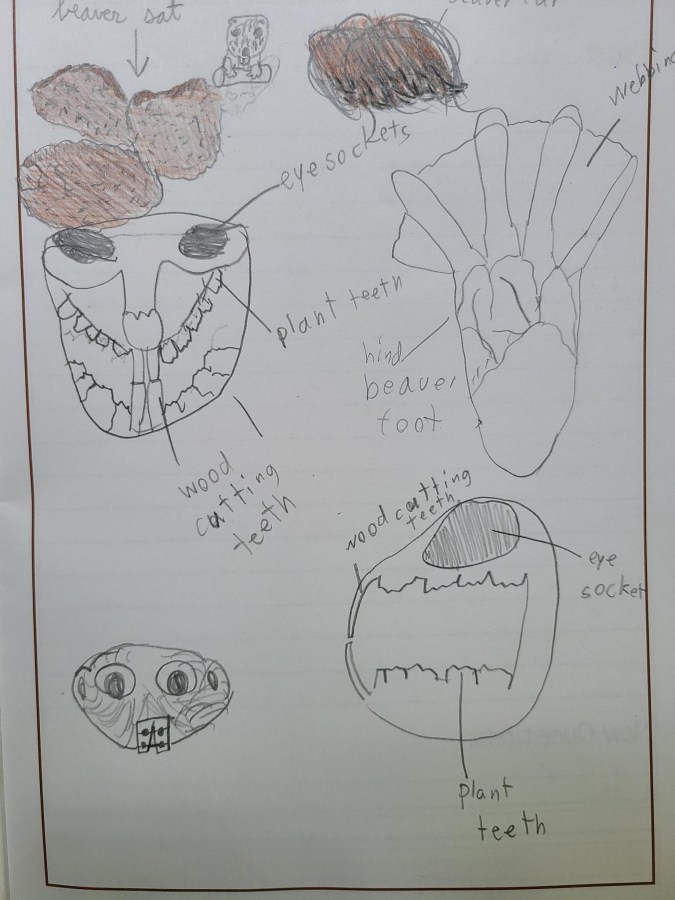 beaver sat
webbing
eye sockets
plant teeth
hind
beaver
foot
wood
cutting
teeth
wood cutting
teeth
eye
socket
plant
teeth